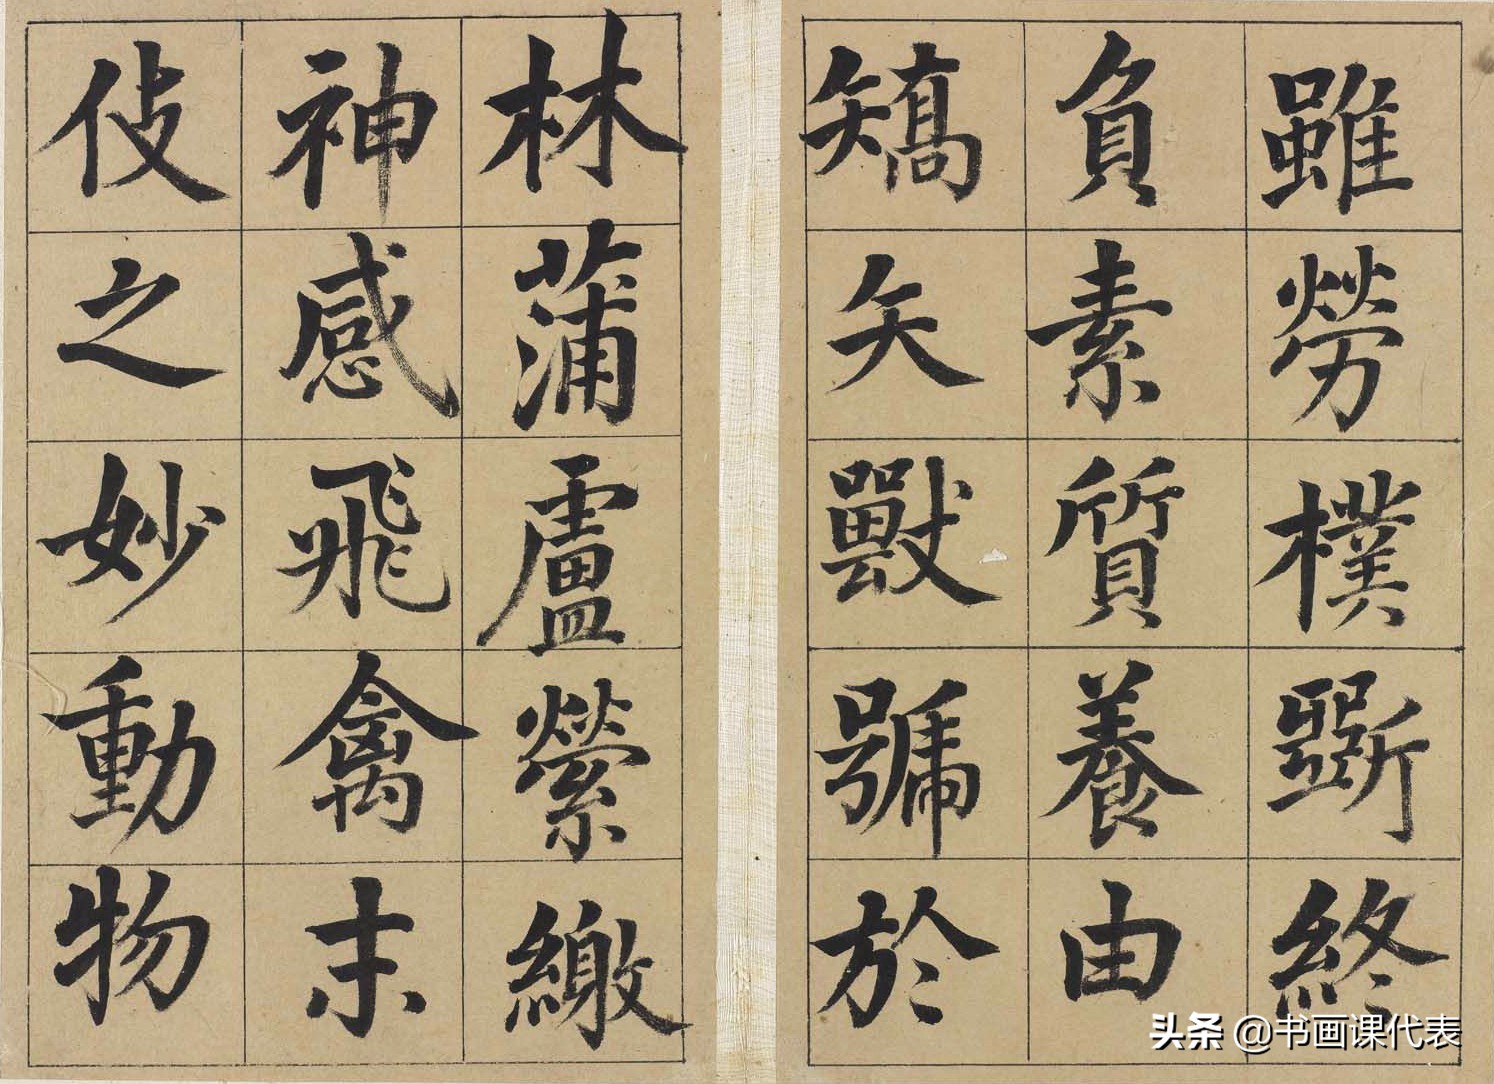 雖勞樸斲終
負素質養由
矯矢獸號於
林蒲盧縈繳
神感飛禽末
伎之妙動物
头条 @书画课代表